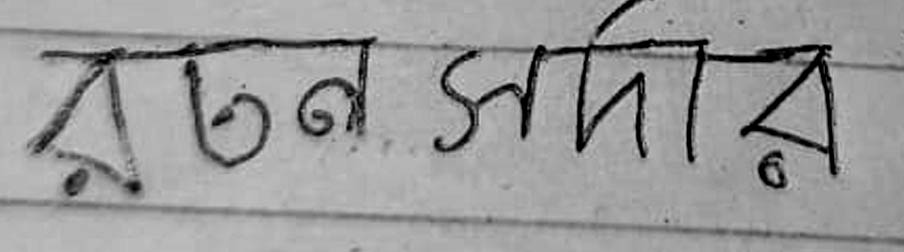 রতন সর্দার